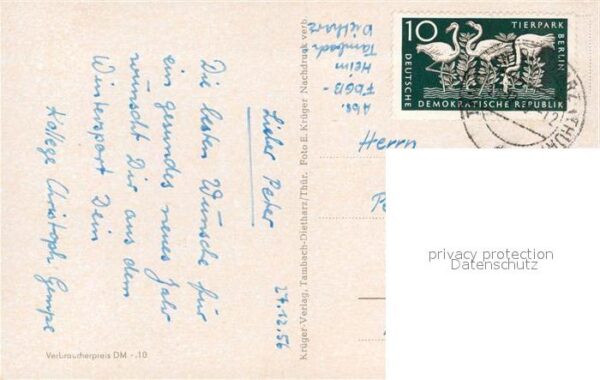 27.12.56
Lieber Peter
Die besten Wünsche für
ein gesundes neues Jahr
wünscht Dir aus dem
Wintersport Dein
Kollege Christoph Gempe
Verbraucherpreis DM -.10
Krüger-Verlag, Tambach-Dietharz/Thür. Foto E. Krüger Nachdruck verb.
Abs.
FDGB-
Heim
Tambach
Dietharz
10
TIERPARK BERLIN
DEUTSCHE
DEMOKRATISCHE REPUBLIK
Herrn
privacy protection
Datenschutz